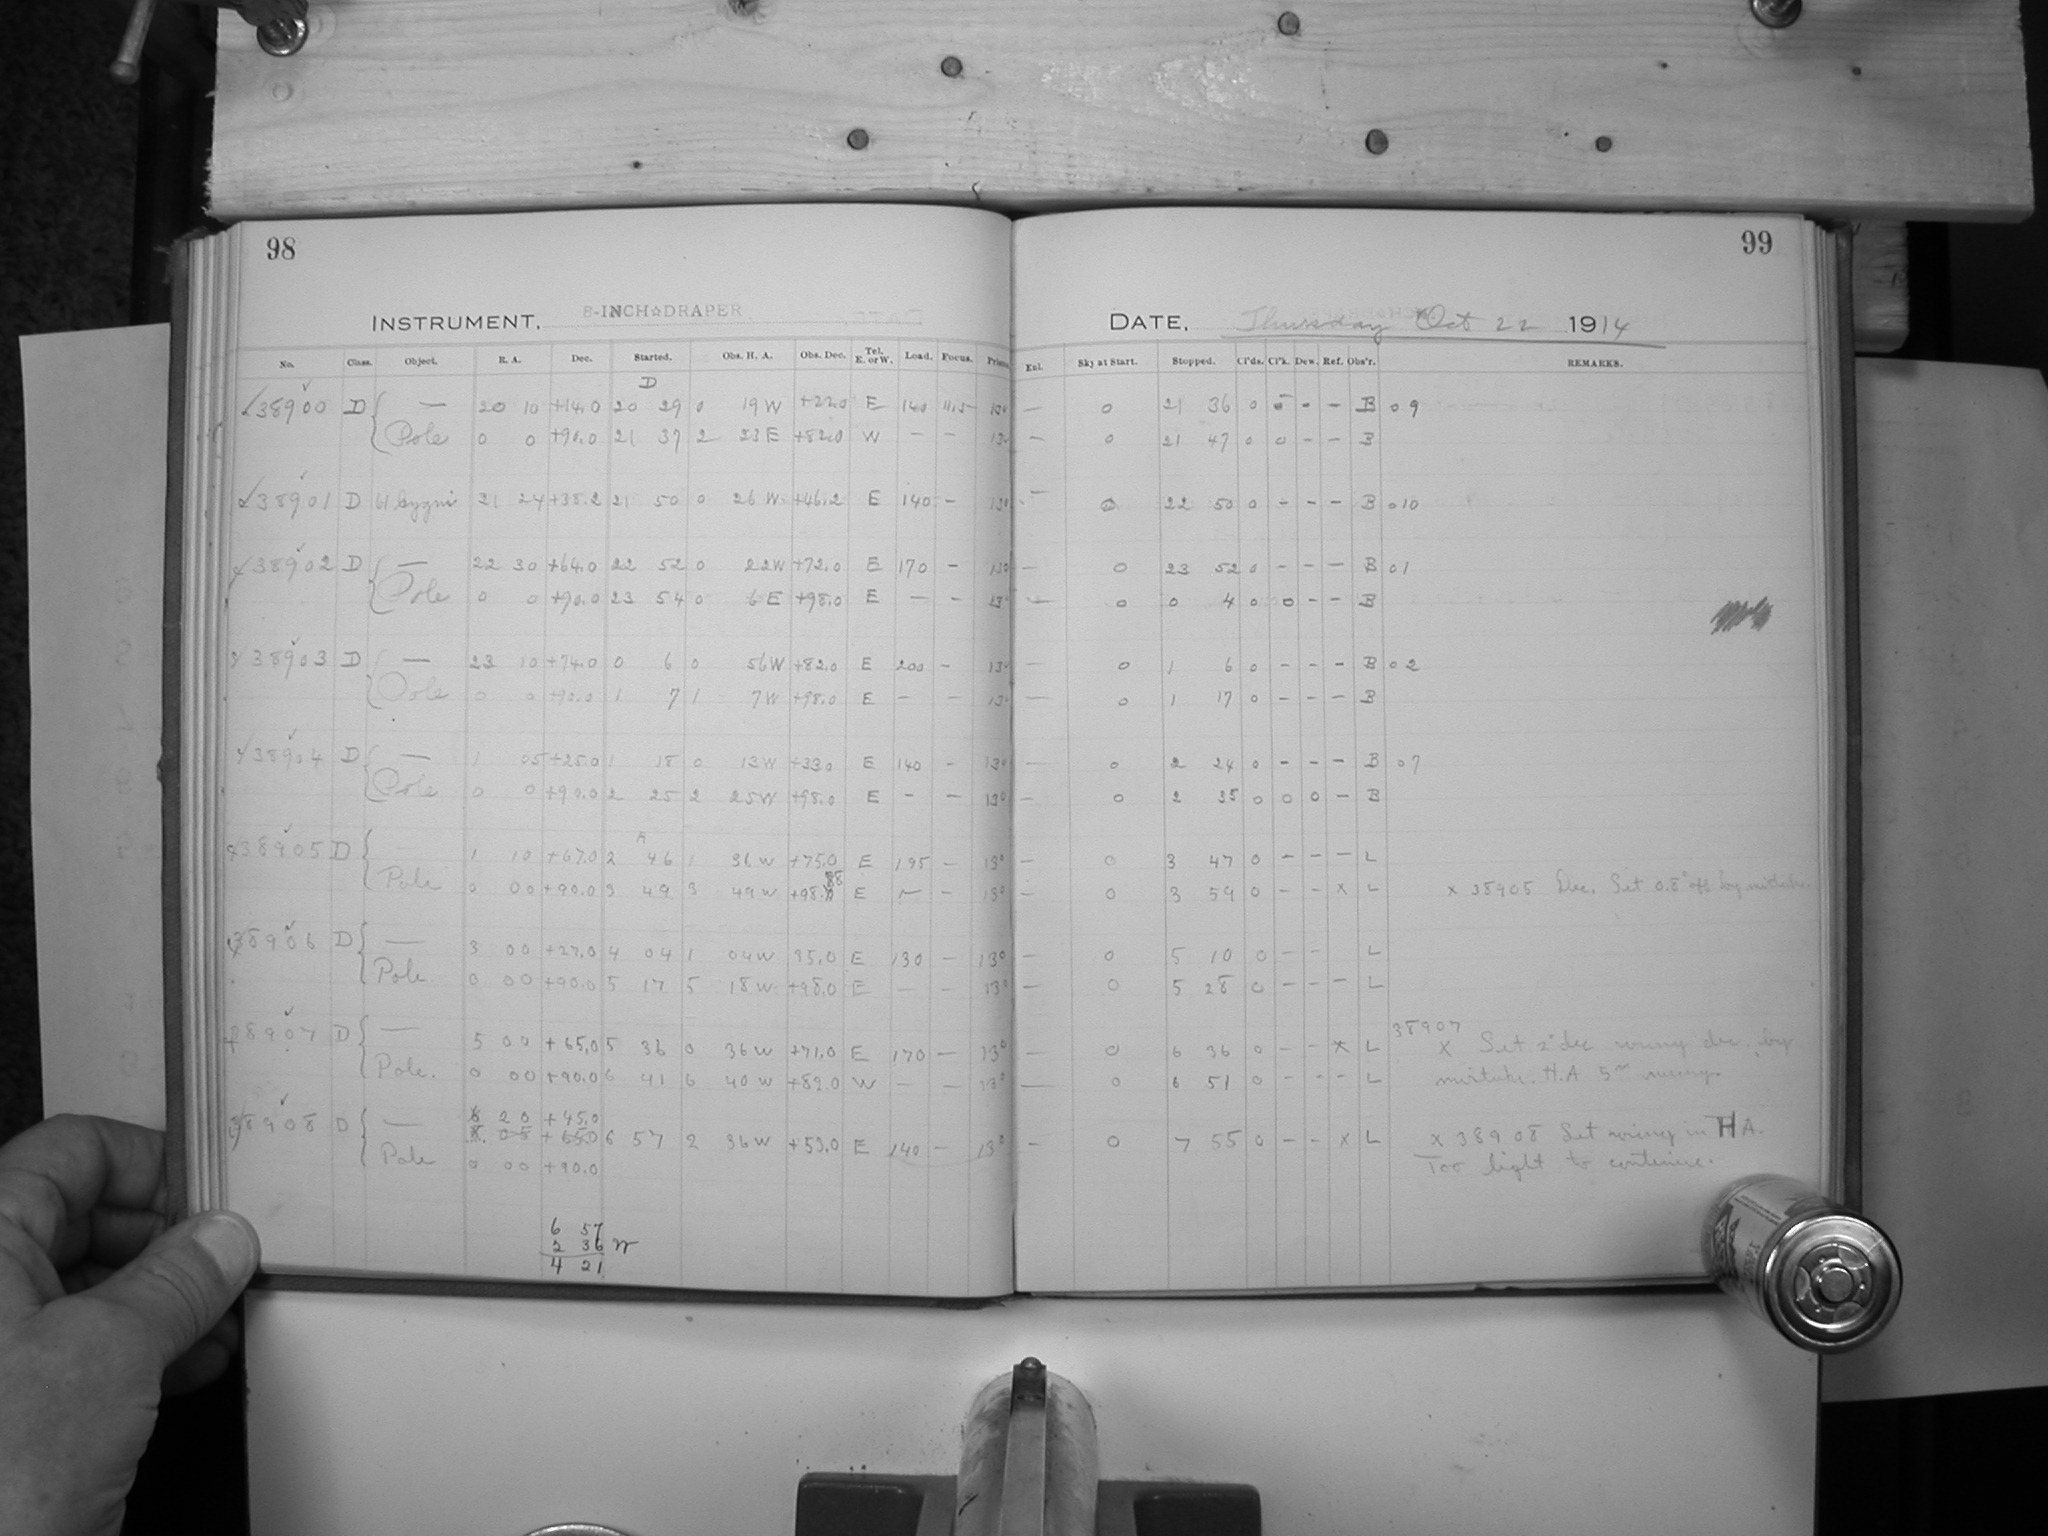 98
99
INSTRUMENT, 8-INCH☆DRAPER
DATE, Thursday Oct 22 1914
No. Class. Object. R. A. Dec. Started. Obs. H. A. Obs. Dec. Tel. E. or W. Load. Focus. Prism Enl. Sky at Start. Stopped. Cl'ds. Cl'k. Dew. Ref. Obs'r. REMARKS.
D
38900 D — 20 10 +14.0 20 29 0 19 W +22.0 E 140 11.5 13° — 0 21 36 0 - - B 09
Pole 0 0 +90.0 21 37 2 23 E +82.0 W — — 13° — 0 21 47 0 0 - - B
38901 D 61 Cygni 21 24 +38.2 21 50 0 26 W +46.2 E 140 - 13° — 0 22 50 0 - - - B 010
38902 D — 22 30 +64.0 22 52 0 22 W +72.0 E 170 - 13° — 0 23 52 0 - - - B 01
Pole 0 0 +90.0 23 54 0 6 E +98.0 E — - 13° — 0 0 4 0 0 - - B
38903 D — 23 10 +74.0 0 6 0 56 W +82.0 E 200 - 13° — 0 1 6 0 - - - B 02
Pole 0 0 +90.0 1 7 1 7 W +98.0 E - - 13° — 0 1 17 0 - - - B
38904 D — 1 05 +25.0 1 18 0 13 W +33.0 E 140 - 13° — 0 2 24 0 - - - B 07
Pole 0 0 +90.0 2 25 2 25 W +98.0 E - - 13° — 0 2 35 0 0 0 - B
38905 D — 1 10 +67.0 2 46 1 36 W +75.0 E 195 - 13° — 0 3 47 0 - - - L
Pole 0 00 +90.0 3 49 3 49 W +98. 88 E ~ - 13° — 0 3 59 0 - - x L x 38905 Dec. Set 0.8° off by mistake.
38906 D — 3 00 +27.0 4 04 1 04 W 35.0 E 130 - 13° — 0 5 10 0 - - L
Pole 0 00 +90.0 5 17 5 18 W +98.0 E — — 13° — 0 5 28 0 - - - L
38907
38907 D — 5 00 +65.0 5 36 0 36 W +71.0 E 170 — 13° — 0 6 36 0 - - x L x Set 2° dec wrong dec. by
Pole. 0 00 +90.0 6 41 6 40 W +82.0 W — — 13° — 0 6 51 0 - - - L mistake. H.A 5m wrong.
6 20 +45.0
38908 D — 8 05 +65.0 6 57 2 36 W +53.0 E 140 — 13° — 0 7 55 0 - - x L x 38908 Set wrong in H A.
Pole 0 00 +90.0 Too light to continue.
6 57
2 36 W
4 21